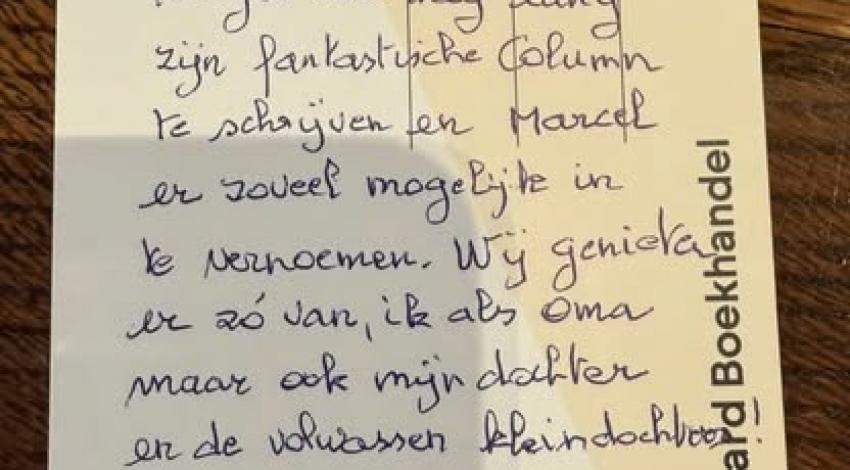 zijn fantastische Column
te schrijven en Marcel
er zoveel mogelijk in
te vernoemen. Wij genieten
er zó van, ik als oma
maar ook mijn dochter
en de volwassen kleindochters!
ard Boekhandel